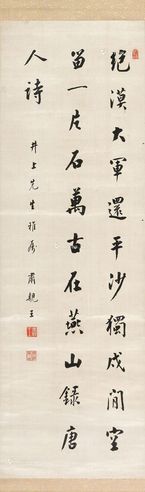 絕漠大軍還平沙獨戍閒空
留一片石萬古在燕山錄唐
人詩
井上先生雅属 肅親王